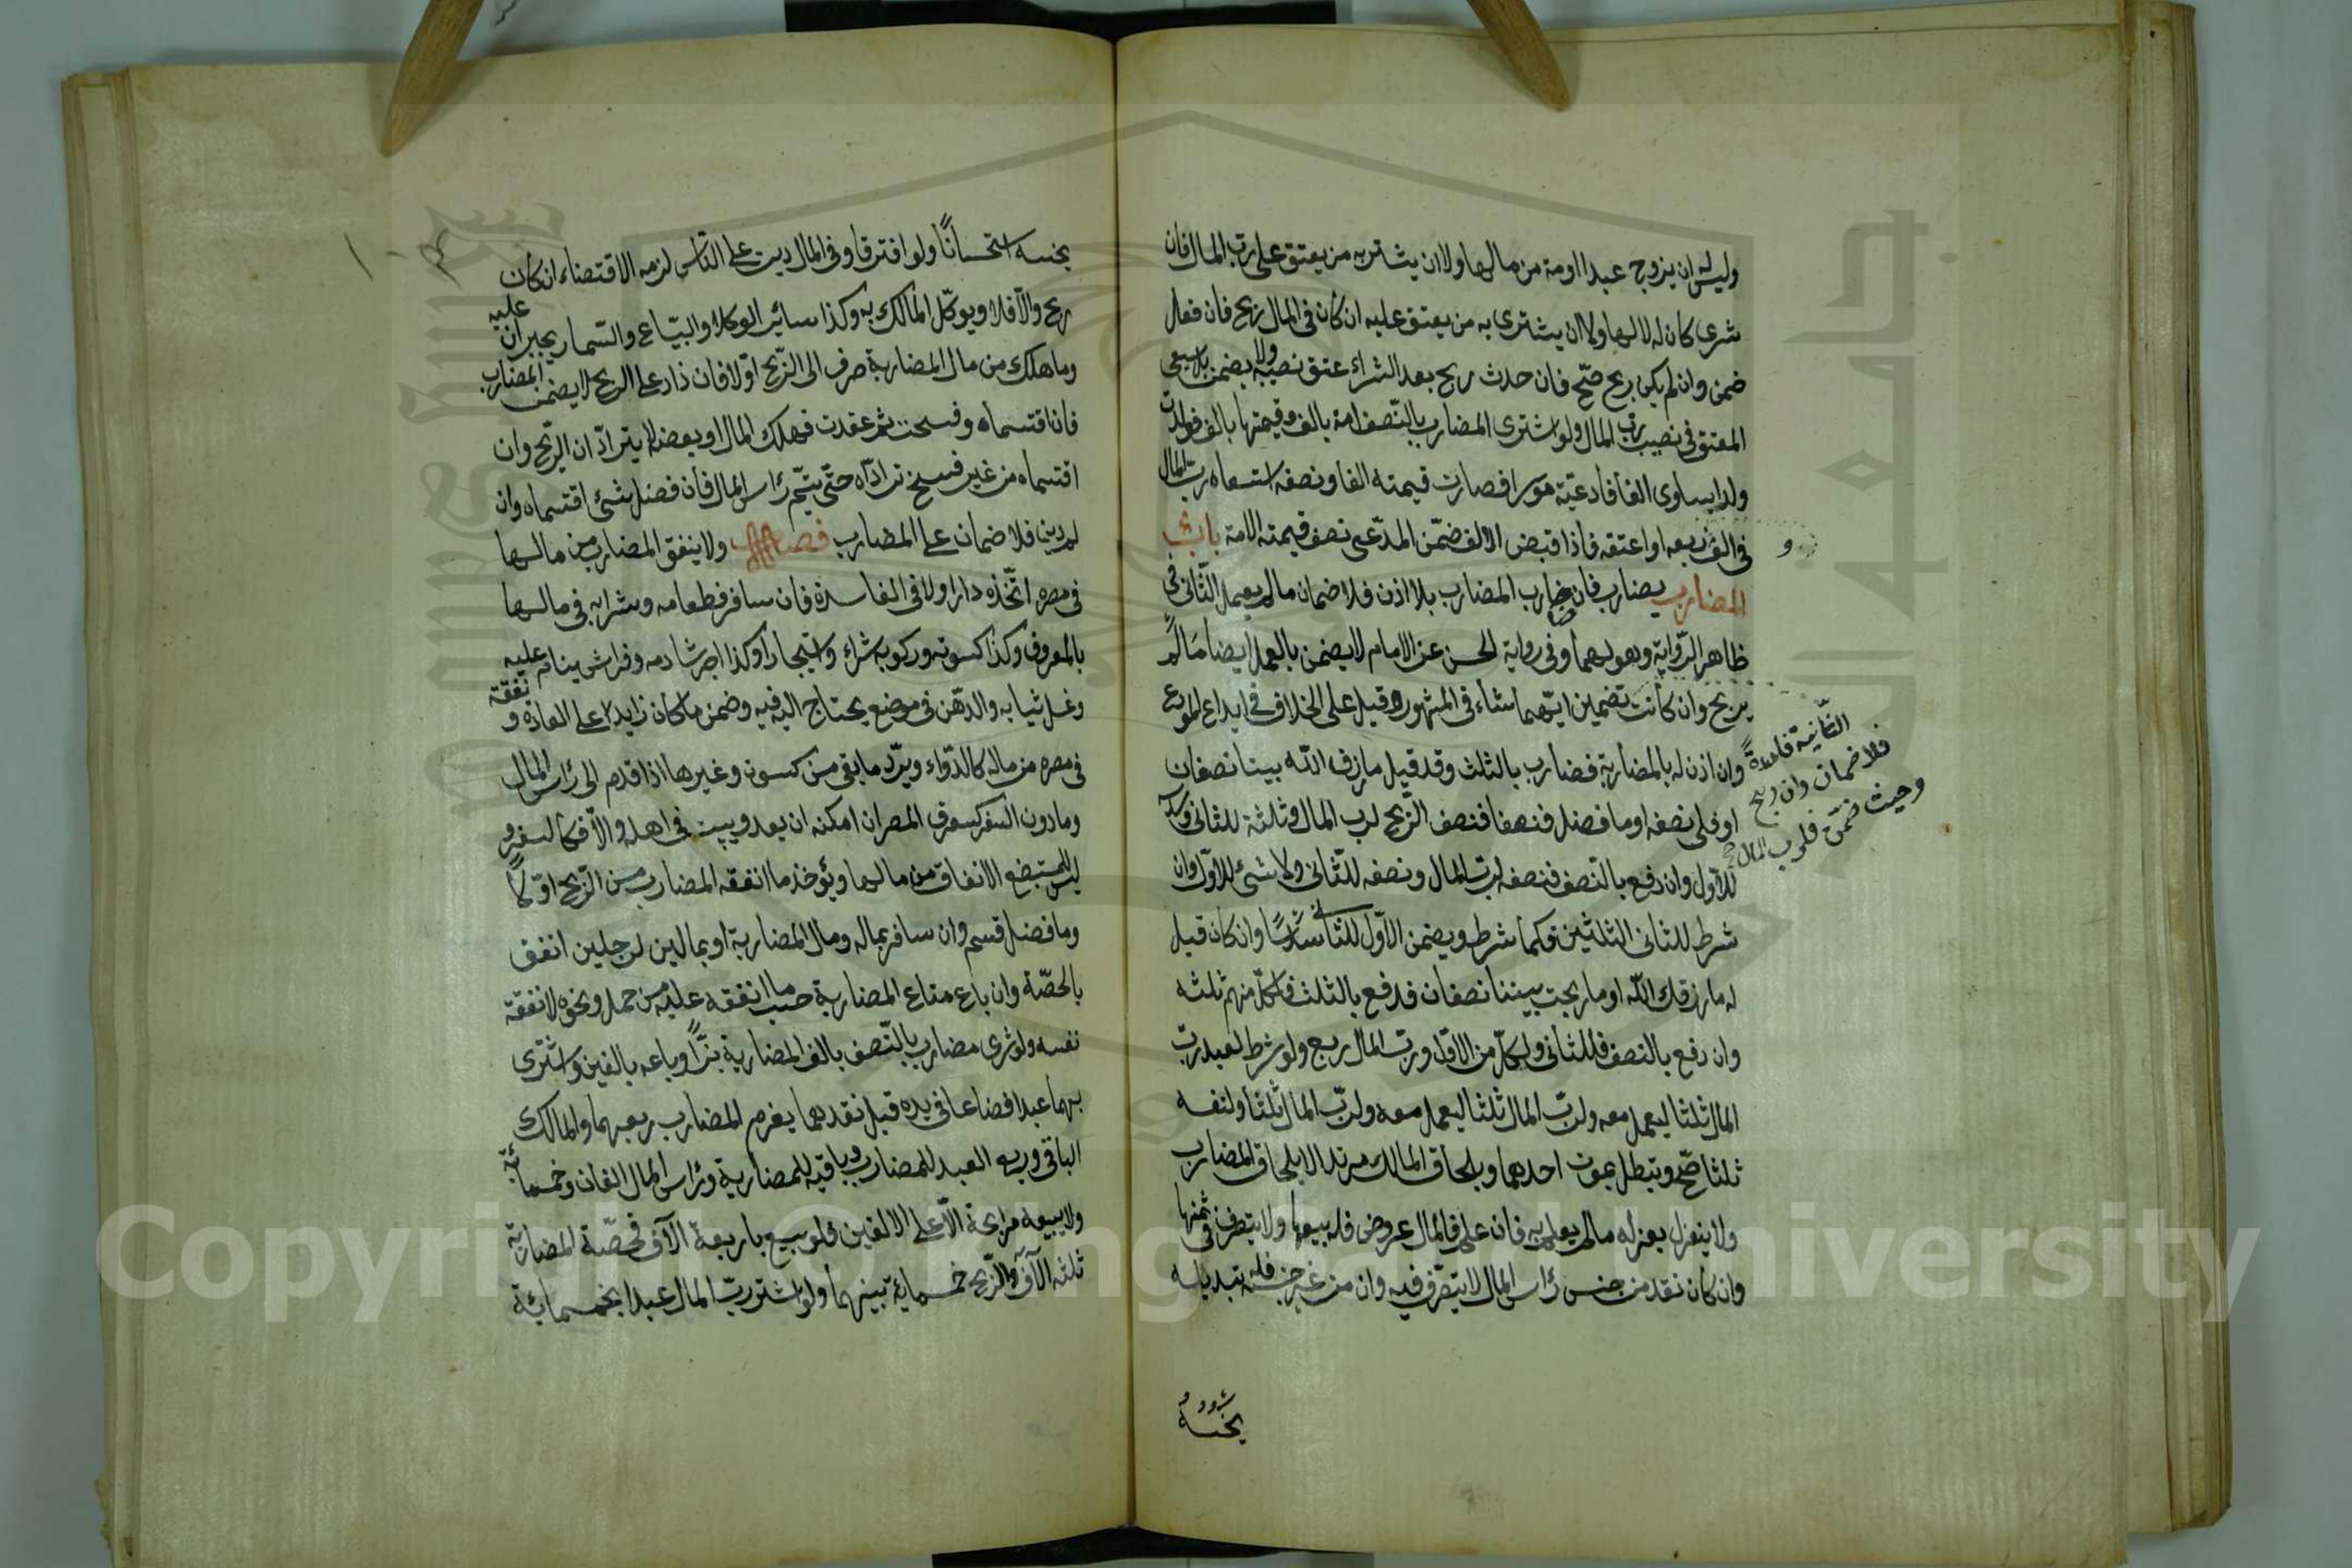 وليس له ان يزوج عبدا او امة من مالها ولا ان يشتريه من يعتق على رب المال فان
شرى كان له لا لها ولا ان يشترى به من يعتق عليه ان كان فى المال ربح فان فعل
ضمن وان لم يكن ربح صح فان حدث ربح بعد الشراء عتق نصيبه ولا يضمن بل يسعى
المعتق فى نصيب رب المال ولو اشترى المضارب بالنصف امة بالف وقيمتها بالف فولدت
ولدا يساوى الفا فادعيه موسرا فصارت قيمته الفا ونصفه استسعاه رب المال
فى الف وربعه او اعتقه فاذا قبض الالف ضمن المدعى نصف قيمته الامة باب
المضارب يضارب فان ضارب المضارب بلا اذن فلا ضمان مالم يعمل الثانى فى
ظاهر الرواية وهو لهما وفى رواية الحسن عن الامام لا يضمن بالعمل ايضا مالم
يربح وان كانت تضمين ايهما شاء فى المشهور وقيل على الخلاف فى ايداع المودع
الثانية فاسدة
فلا ضمان وان ربح
وحيث ضمن فلرب المال
وان اذن له بالمضاربة فضارب بالثلث وقد قيل ما رزق الله بيننا نصفان
او فلى نصفه او ما فضل فنصفا فنصف الربح لرب المال وثلثة للثانى وسدسه
للاول وان دفع بالنصف فنصفه لرب المال ونصفه للثانى ولا شئ للاول وان
شرط للثانى الثلثين فكما شرط ويضمن الاول للثانى سدسا وان كان قيل
له ما رزقك الله او ما ربحت بيننا نصفان فدفع بالثلث فلكل منهم ثلثه
وان دفع بالنصف فللثانى ولكل من الاول ورب المال ربع ولو شرط لعبد رب
المال ثلثا ليعمل معه ولرب المال ثلثا ليعمل معه ولرب المال ثلثا ولنفسه
ثلثا صح وتبطل بموت احدهما وبلحاق المالك مرتدا لا بلحاق المضارب
ولا ينعزل بعزله مالم يعلم به فان علم فالمال عروض فله بيعها ولا يتصرف فى ثمنها
وان كان نقد من جنس رأس المال لا يتصرف فيه وان من غير جنسه فله تبديله
بجنسه
بجنسه استحسانا ولو افترقا وفى المال ديت على الناس لزمه الاقتضاء ان كان
ربح والا فلا ويوكل المالك به وكذا سائر الوكلا والبياع والسمسار يجبران عليه
وما هلك من مال المضاربة صرف الى الربح اولا فان ذاد على الربح لا يضمن المضارب
فان اقتسماه وفسخت ثم عقدت فهلك المال او بعضه لا يترادان الربح وان
اقتسماه من غير فسخ ترادّاه حتى يتم رأس المال فان فضل شئ اقتسماه وان
لم يف فلا ضمان على المضارب فصل ولا ينفق المضارب من مالها
فى مصره اتخذه دارا ولا فى الفاسدة فان سافر فطعامه وشرابه فى مالها
بالمعروف وكذا كسوته وركوبه شراء واستيجارا وكذا اجر خادمه وفراش ينام عليه
وغسل ثيابه والدهن فى موضع يحتاج اليه فيه وضمن ما كان زايدا على العادة ونفقته
فى مصره من ماله كالدواء ويرد ما بقى من كسوة وغيرها اذا قدم الى رأس المال
وما دون السفر كسوق المصر ان امكنه ان يعد ويبيت فى اهله والا فكالسفر و
ليس للمستبضع الانفاق من مالها ويؤخذ ما انفقه المضارب من الربح اولا
وما فضل قسم وان سافر بماله ومال المضاربة او بمالين لرجلين انفق
بالحصة وان باع متاع المضاربة حسب ما انفقه عليه من حمل ونحوه لا نفقة
نفسه ولو شرى مضارب بالنصف بالف المضاربة بزا وباعه بالفين واشترى
بهما عبدا فضاعا فى يده قبل نقدهما يغرم المضارب ربعهما والمالك
الباقى وربع العبد للمضارب وباقيه للمضاربة ورأس المال الفان وخمسمائة
ولا يبيعه مرابحة الا على الالفين فلو بيع باربعة الآف فحصة المضاربة
ثلثه الآف والربح خمسماية بينهما ولو اشترى رب المال عبدا بخمسمائة
Copyright © King Saud University
جامعة الملك سعود